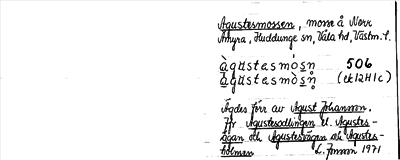 Agustesmossen, mosse å Norr
Åmyra, Huddunge sn, Våla hd, Västm. l.
àgustesmòsn 506
àgustesmòsn̥ (ek 12H1c)
Ägdes förr av Agust Johansson.
Jfr Agustesodlingen el. Agustes-
ägan och Agustesvägen och Agustes-
holmen L. Jonsson 1971